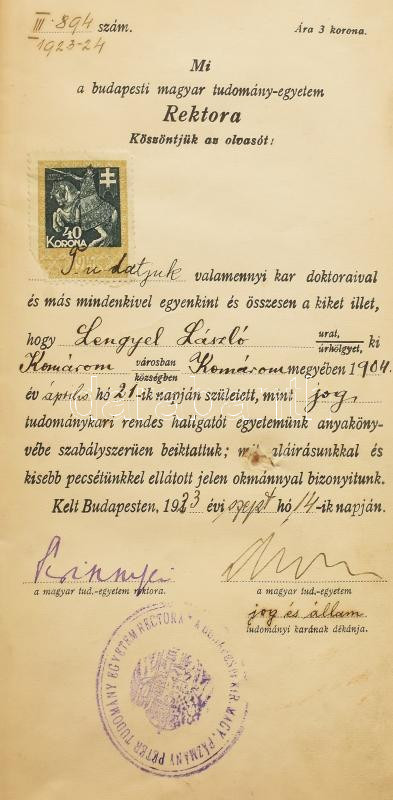 III·894 szám. Ára 3 korona.
1923-24
Mi
a budapesti magyar tudomány-egyetem
Rektora
Köszöntjük az olvasót!
40
KORONA
Tudatjuk valamennyi kar doktoraival
és más mindenkivel egyenkint és összesen a kiket illet,
hogy Lengyel László urat, úrhölgyet, ki
Komárom városban községben Komárom megyében 1904.
év április hó 21-ik napján született, mint jog,
tudománykari rendes hallgatót egyetemünk anyaköny-
vébe szabályszerüen beiktattuk; mit aláirásunkkal és
kisebb pecsétünkkel ellátott jelen okmánnyal bizonyitunk.
Kelt Budapesten, 1923 évi szept hó 14-ik napján.
a magyar tud.-egyetem rektora.
a magyar tud.-egyetem
jog és állam
tudományi karának dékánja.
A BUDAPESTI KIR. MAGY. PÁZMÁNY PÉTER TUDOMÁNY EGYETEM RECTORA